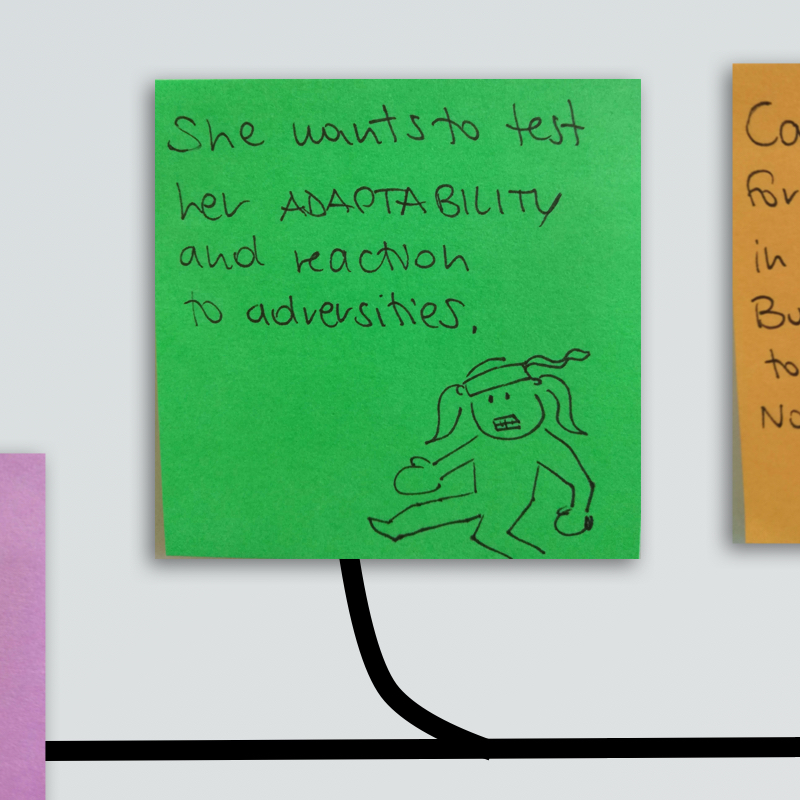 She wants to test
her ADAPTABILITY
and reaction
to adversities.
in
to